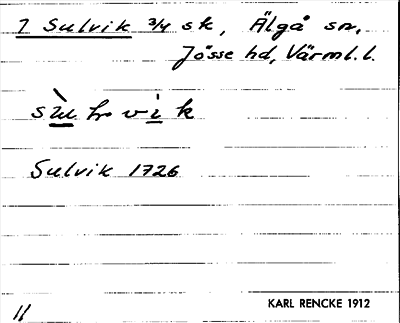 7 Sulvik 3/4 sk, Älgå sn,
Jösse hd, Värml.l.
Sulvik 1726
KARL RENCKE 1912
11